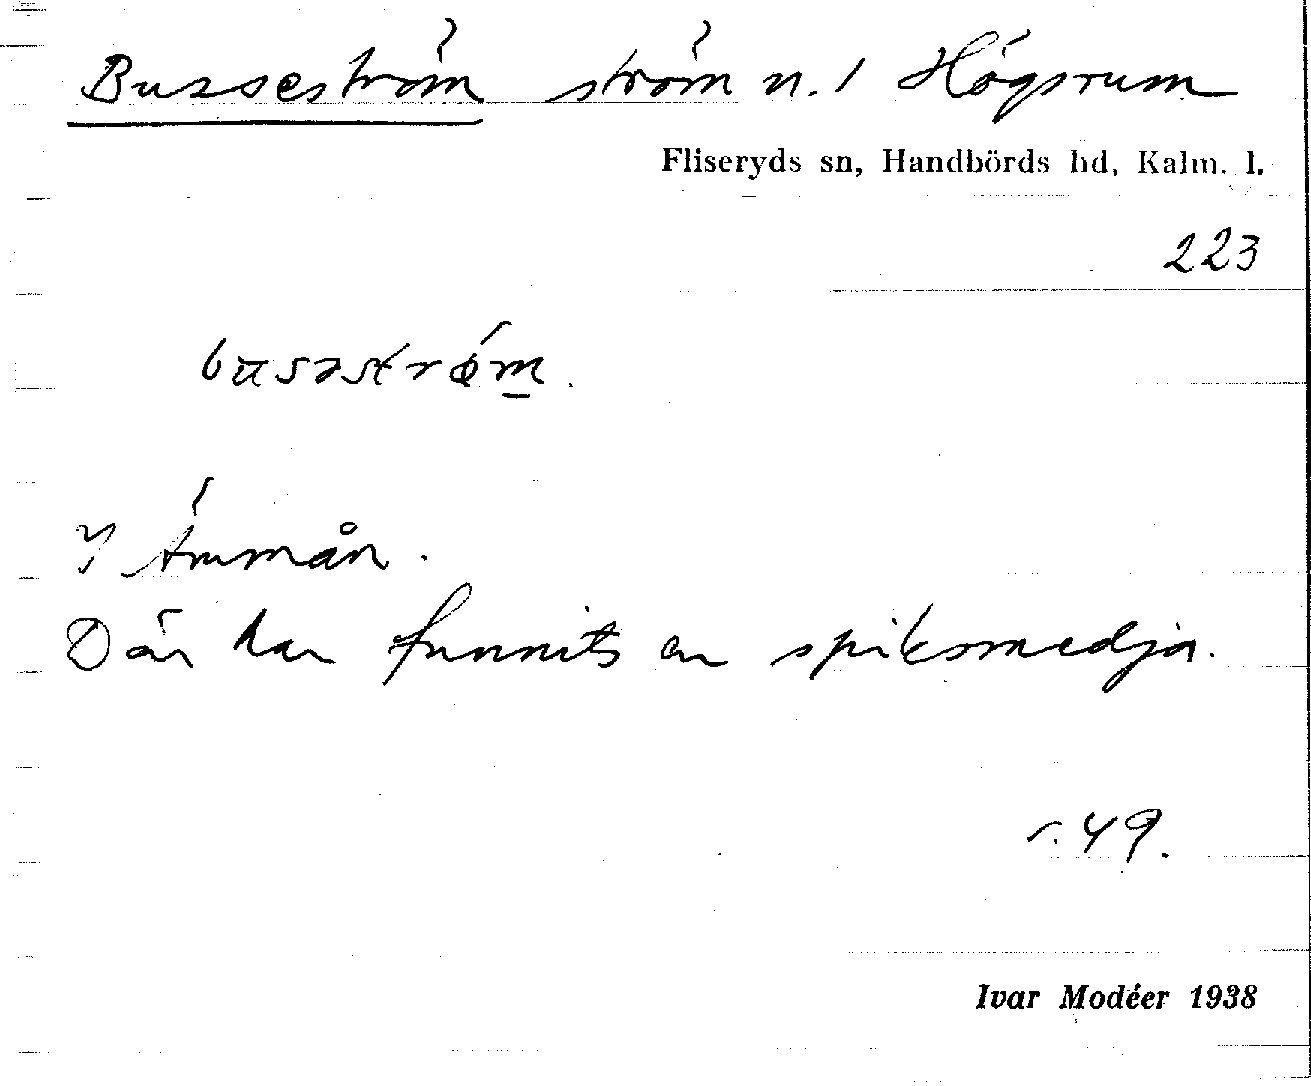 Busseström ström n. 1 Högsrum
Fliseryds sn, Handbörds hd, Kalm. l.
223
busəstrǿm.
I Ämmån.
Där har funnits en spiksmedja.
s. 49.
Ivar Modéer 1938